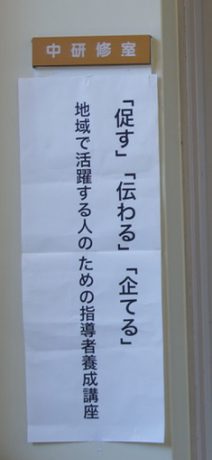 中研修室
「促す」「伝わる」「企てる」
地域で活躍する人のための指導者養成講座